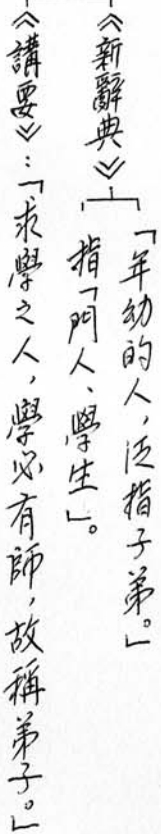 《新辭典》
「年幼的人，泛指子弟。」
指「門人、學生」。
《講要》：「求學之人，學必有師，故稱弟子。」